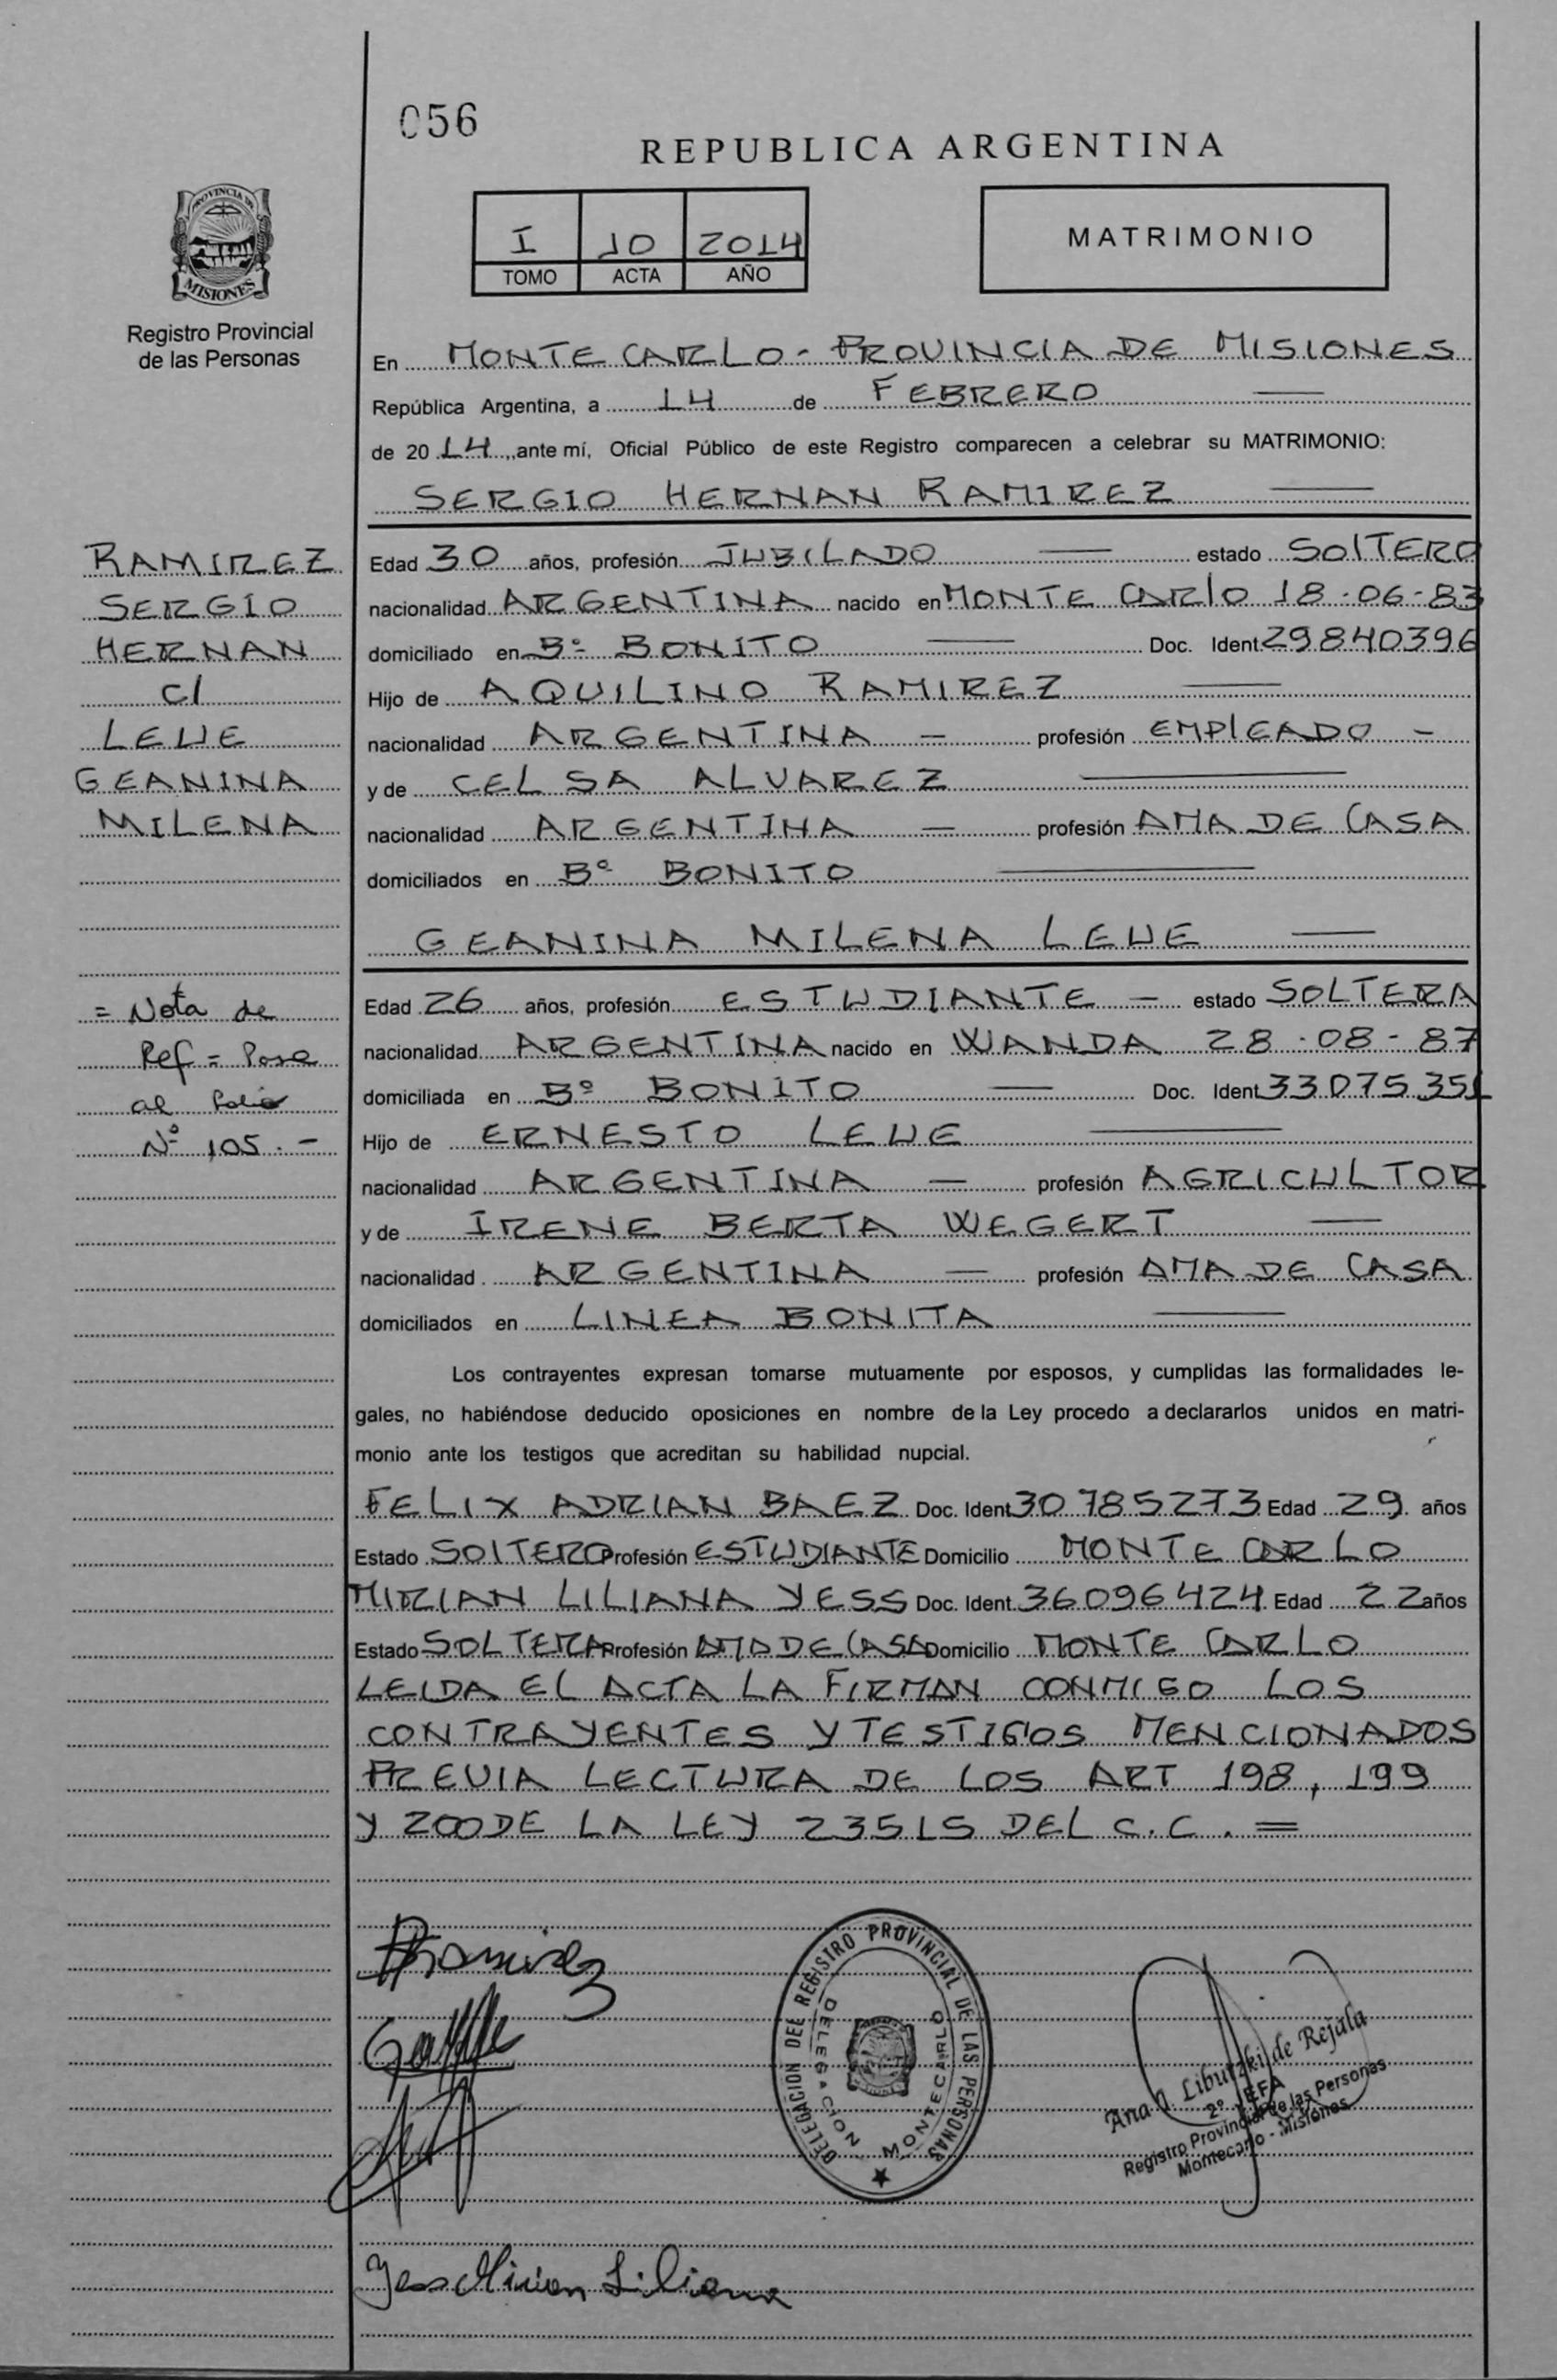 056
REPUBLICA ARGENTINA
I 10 2014
TOMO ACTA AÑO
MATRIMONIO
PROVINCIA DE
MISIONES
Registro Provincial
de las Personas
En MONTE CARLO - PROVINCIA DE MISIONES
República Argentina, a 14 de FEBRERO
de 20 14, ante mí, Oficial Público de este Registro comparecen a celebrar su MATRIMONIO:
SERGIO HERNAN RAMIREZ
RAMIREZ
SERGIO
HERNAN
c/
LEUE
GEANINA
MILENA
Edad 30 años, profesión JUBILADO estado SOLTERO
nacionalidad ARGENTINA nacido en MONTE CARLO 18-06-83
domiciliado en Bº BONITO Doc. Ident 29840396
Hijo de AQUILINO RAMIREZ
nacionalidad ARGENTINA - profesión EMPLEADO -
y de CELSA ALVAREZ
nacionalidad ARGENTINA - profesión AMA DE CASA
domiciliados en Bº BONITO
GEANINA MILENA LEUE
= Nota de
Ref = Pase
al folio
Nº 105.-
Edad 26 años, profesión ESTUDIANTE - estado SOLTERA
nacionalidad ARGENTINA nacido en WANDA 28-08-87
domiciliada en Bº BONITO Doc. Ident 33075351
Hijo de ERNESTO LEUE
nacionalidad ARGENTINA - profesión AGRICULTOR
y de IRENE BERTA WEGERT
nacionalidad ARGENTINA - profesión AMA DE CASA
domiciliados en LINEA BONITA
Los contrayentes expresan tomarse mutuamente por esposos, y cumplidas las formalidades le-
gales, no habiéndose deducido oposiciones en nombre de la Ley procedo a declararlos unidos en matri-
monio ante los testigos que acreditan su habilidad nupcial.
FELIX ADRIAN BAEZ Doc. Ident 30785273 Edad 29 años
Estado SOLTERO Profesión ESTUDIANTE Domicilio MONTE CARLO
MIRIAN LILIANA YESS Doc. Ident 36096424 Edad 22 años
Estado SOLTERA Profesión AMA DE CASA Domicilio MONTE CARLO
LEIDA EL ACTA LA FIRMAN CONMIGO LOS
CONTRAYENTES Y TESTIGOS MENCIONADOS
PREVIA LECTURA DE LOS ART 198, 199
Y 200 DE LA LEY 23515 DEL C.C. =
Ramirez
DELEGACION DEL REGISTRO PROVINCIAL DE LAS PERSONAS
DELEGACION MONTECARLO
Ana J. Libutzki de Rejala
2º JEFA
Registro Provincial de las Personas
Montecarlo - Misiones
Yess Mirian Liliana